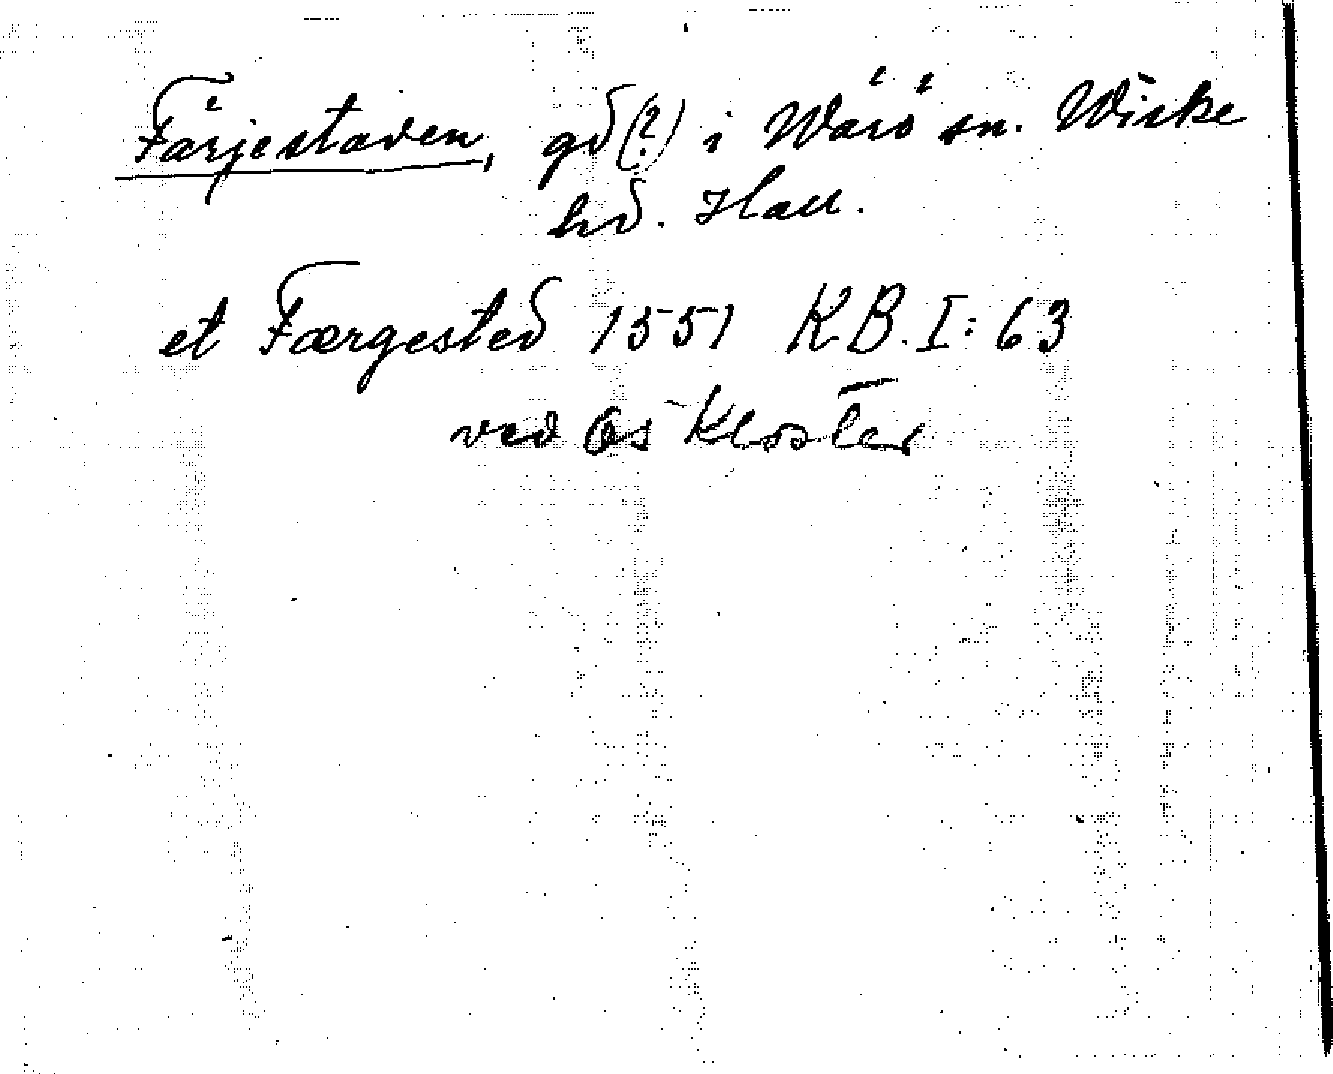 Färjestaden, gd(?) i Wärö sn. Wiske
hd. Hall.
et Færgested 1551 KB. I: 63
ved Os Kloster